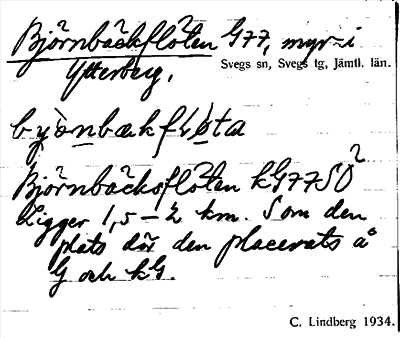 Björnbäckflöten G77, myr i
Ytterberg,
Svegs sn, Svegs tg, Jämtl. län.
Björnbäcksflöten kG77SO
Ligger 1,5–2 km. S om den
plats där den placerats å
G och kG.
C. Lindberg 1934.